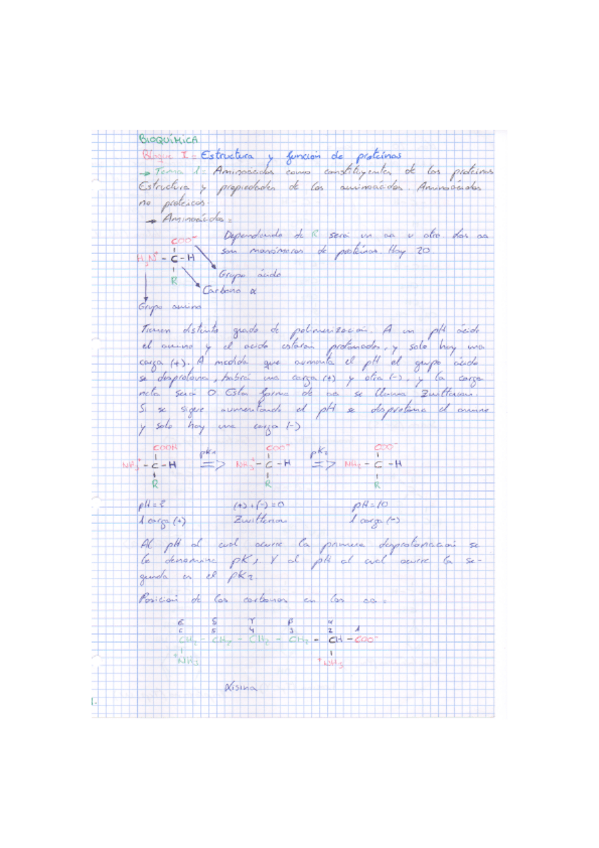 BIOQUÍMICA
Bloque I = Estructura y función de proteínas
→ Tema 1 = Aminoácidos como constituyentes de las proteínas
Estructura y propiedades de los aminoácidos. Aminoácidos
no proteicos
→ Aminoácidos =
COO⁻ Dependiendo de R será un aa u otro. Los aa
H₃N⁺ - C - H son monómeros de proteínas. Hay 20
R Grupo ácido
Carbono α
Grupo amino
Tienen distinto grado de polimerización. A un pH ácido
el amino y el ácido estarán protonados, y solo hay una
carga (+). A medida que aumenta el pH el grupo ácido
se desprotona, habrá una carga (+) y otra (-), y la carga
neta será 0. Esta forma de aa se llama Zwitterion.
Si se sigue aumentando el pH se desprotona el amino
y solo hay una carga (-)
COOH pK₁ COO⁻ pK₂ COO⁻
NH₃⁺ - C - H => NH₃⁺ - C - H => NH₂ - C - H
R R R
(+) + (-) = 0 pH = 10
1 carga (+) Zwitterion 1 carga (-)
Al pH al cual ocurre la primera desprotonación se
le denomina pK₁ Y al pH al cual ocurre la se-
gunda es el pK₂
Posición de los carbonos en los aa =
6 5 4 3 2 1
CH₂ - CH₂ - CH₂ - CH₂ - CH - COO⁻
⁺NH₃ ⁺NH₃
Lisina